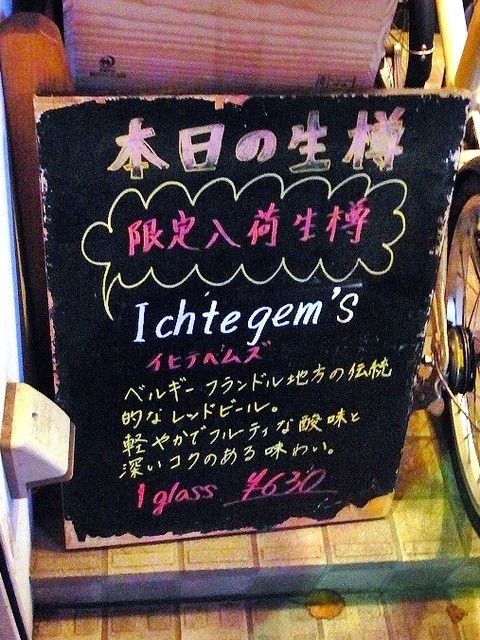 本日の生樽
限定入荷生樽
Ichtegem's
イヒテヘムズ
ベルギーフランドル地方の伝統
的なレッドビール。
軽やかでフルティな酸味と
深いコクのある味わい。
1 glass ¥630